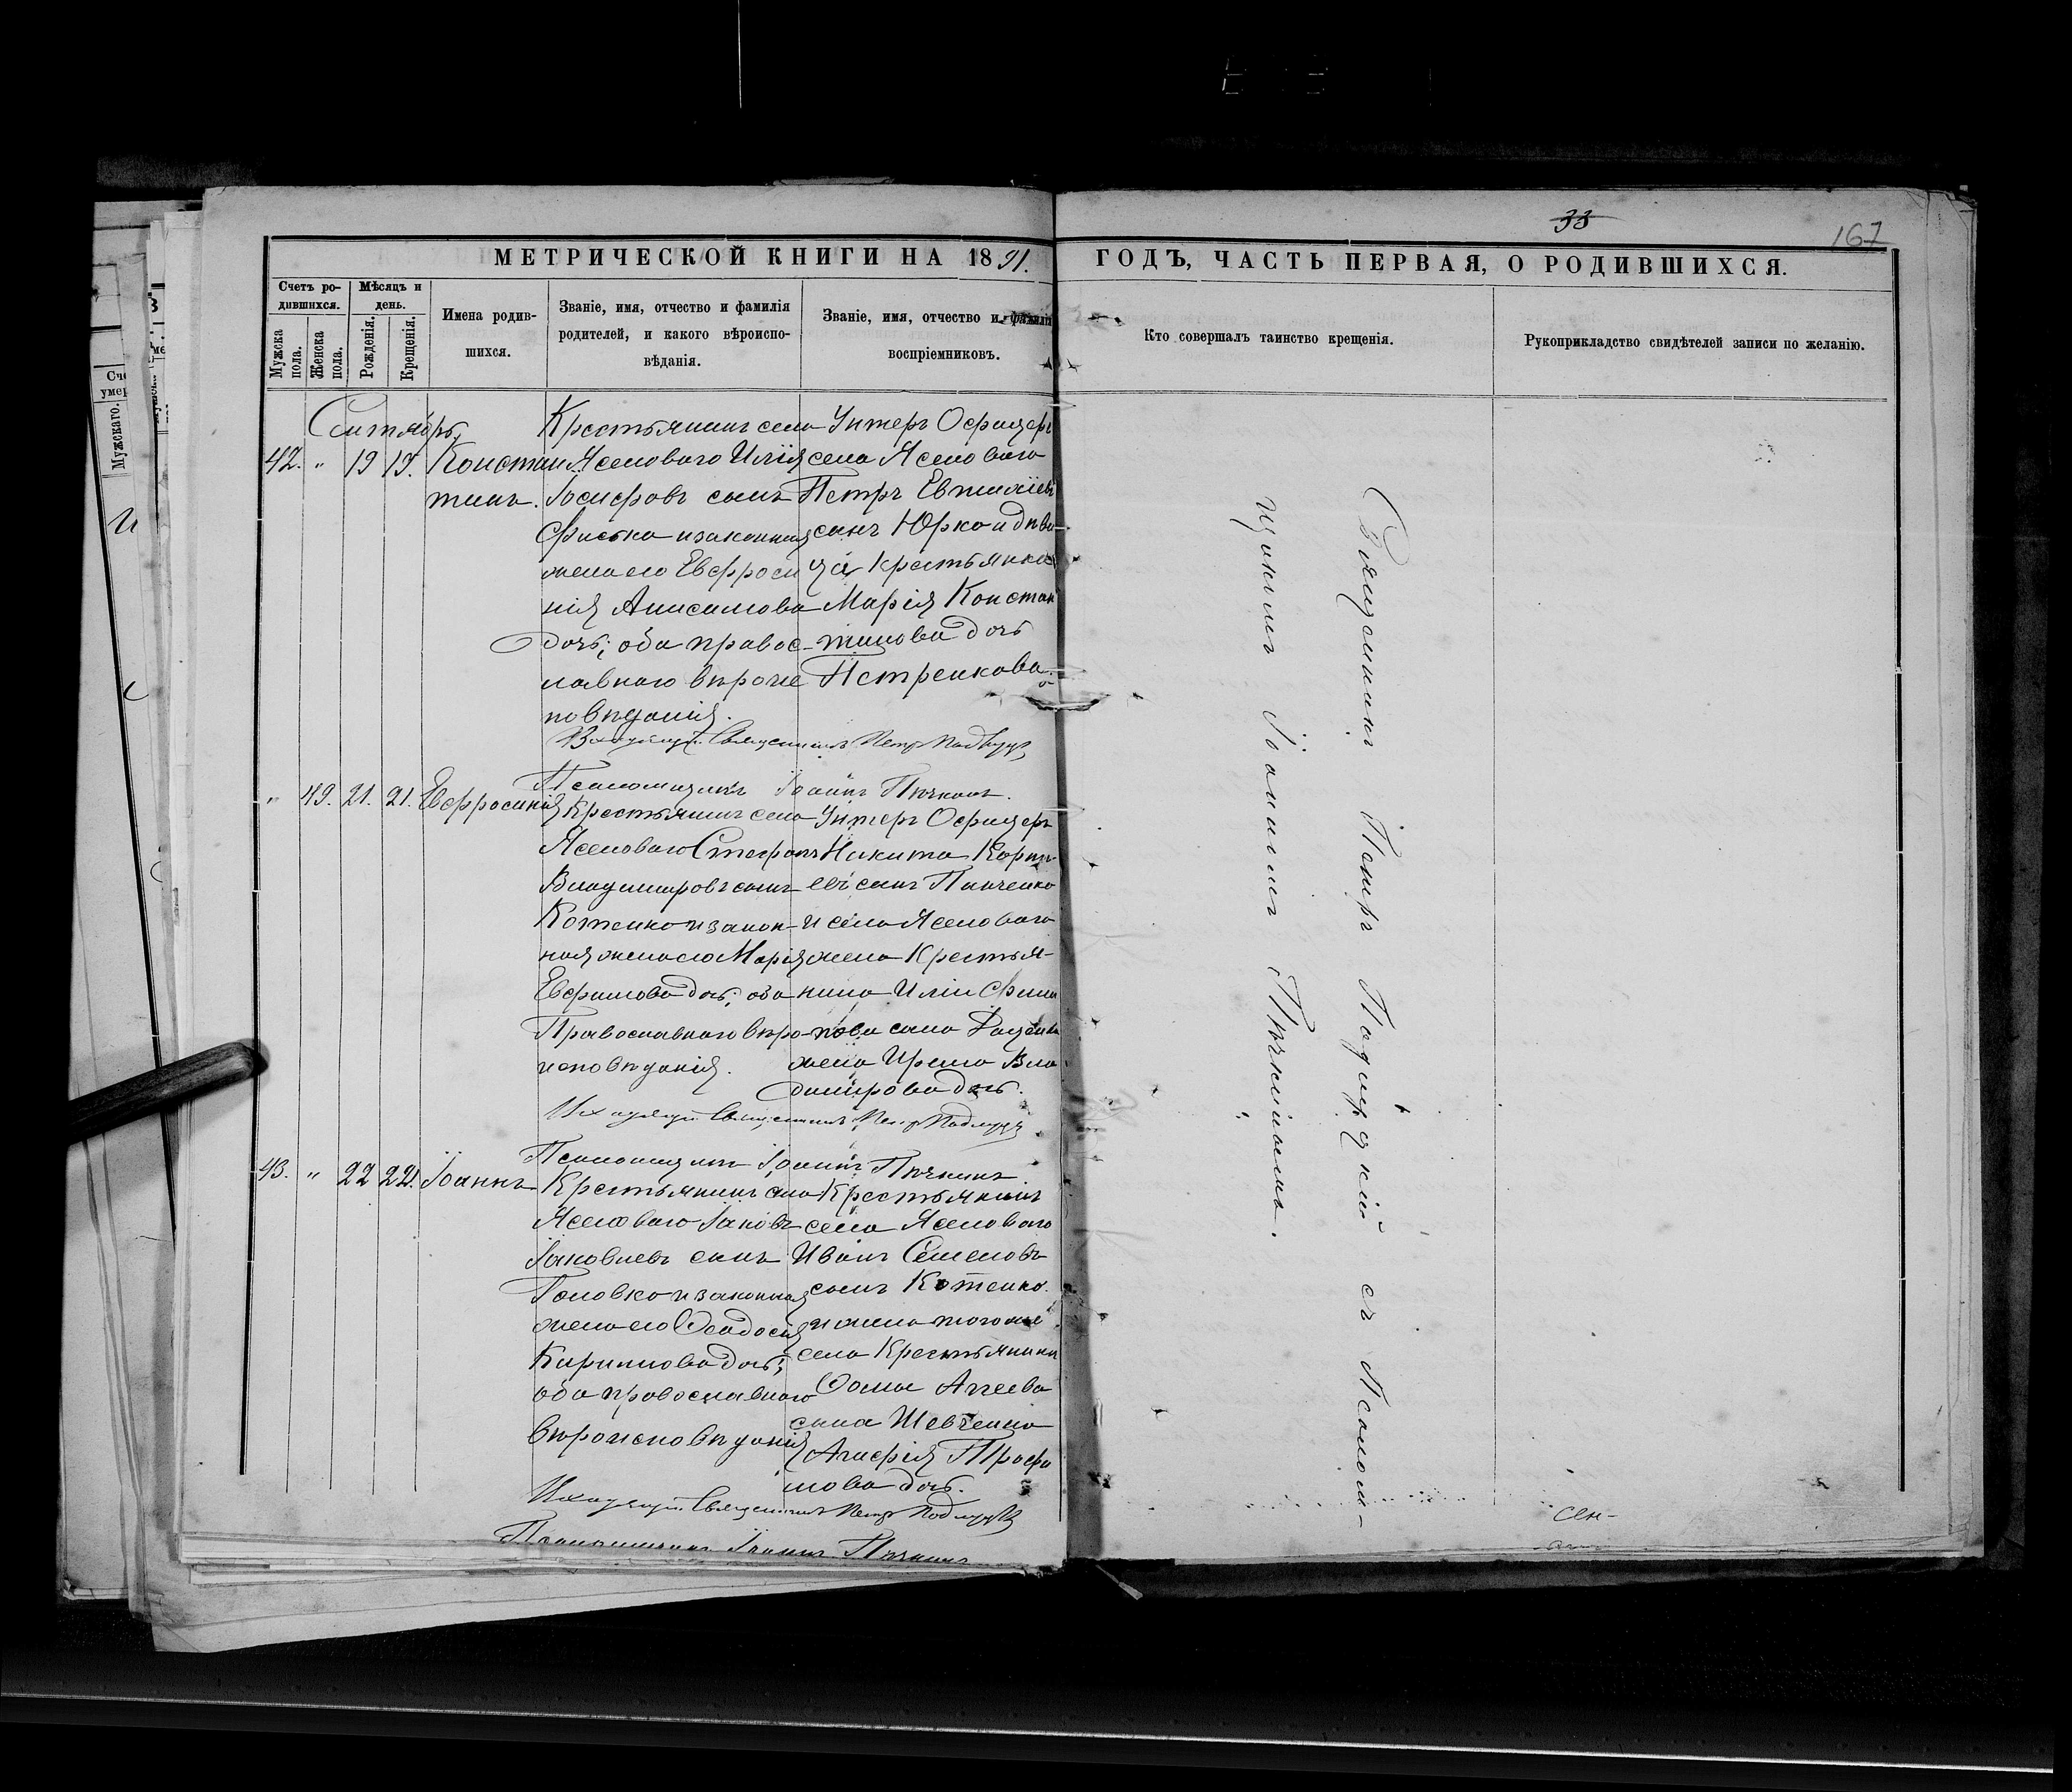 33
167
МЕТРИЧЕСКОЙ КНИГИ НА 1891.
ГОДЪ, ЧАСТЬ ПЕРВАЯ, О РОДИВШИХСЯ.
Счетъ ро-
дившихся.
Мужска
пола.
Женска
пола.
Мѣсяцъ и
день.
Рожденія.
Крещенія.
Имена родив-
шихся.
Званіе, имя, отчество и фамилія
родителей, и какого вѣроиспо-
вѣданія.
Званіе, имя, отчество и фамилія
воспріемниковъ.
Кто совершалъ таинство крещенія.
Рукоприкладство свидѣтелей записи по желанію.
Сентябрь
42. " 19 19. Констан
тинъ.
Крестьянинъ села
Ясеноваго Илія
Іосифовъ сынъ
Фисько и законная
жена его Евфроси
нія Анисимова
дочь; оба правос-
лавнаго вѣроис
повѣданія.
Унтеръ Офицеръ
села Ясеноваго
Петръ Евтихіевъ
сынъ Юрко и дѣви-
ца крестьянка
Марія Констан
тинова дочь
Петренкова.
Священникъ Петръ
Псаломщикъ Іоаннъ
" 49. 21. 21. Евфросинія
Крестьянинъ села
Ясеноваго Стефанъ
Владимировъ сынъ
Котенко и закон-
ная жена его Марія
Евфимова дочь; оба
Православнаго вѣро-
исповѣданія.
Унтеръ Офицеръ
Никита Корни-
евъ сынъ Панченко
и села Ясеноваго
жена Крестья-
нина Иліи
сына
жена Ирина Вла
димірова дочь.
Священникъ Петръ
Псаломщикъ Іоаннъ
43. " 22 22. Іоаннъ
Крестьянинъ села
Ясеноваго Іаковъ
Іаковлевъ сынъ
Головко и законная
жена его Ѳеодосія
Кирилова дочь;
оба православнаго
вѣроисповѣданія
Крестьянинъ
села Ясеноваго
Иванъ Семеновъ
сынъ Котенко.
и жена того же
села Крестьянина
Ѳомы Агеева
сына Шевченко
Агафія Трофи
мова дочь.
Священникъ Петръ
Псаломщикъ Іоаннъ
Священникъ Петръ с съ Псалом-
щикомъ Іоанномъ
Сен-